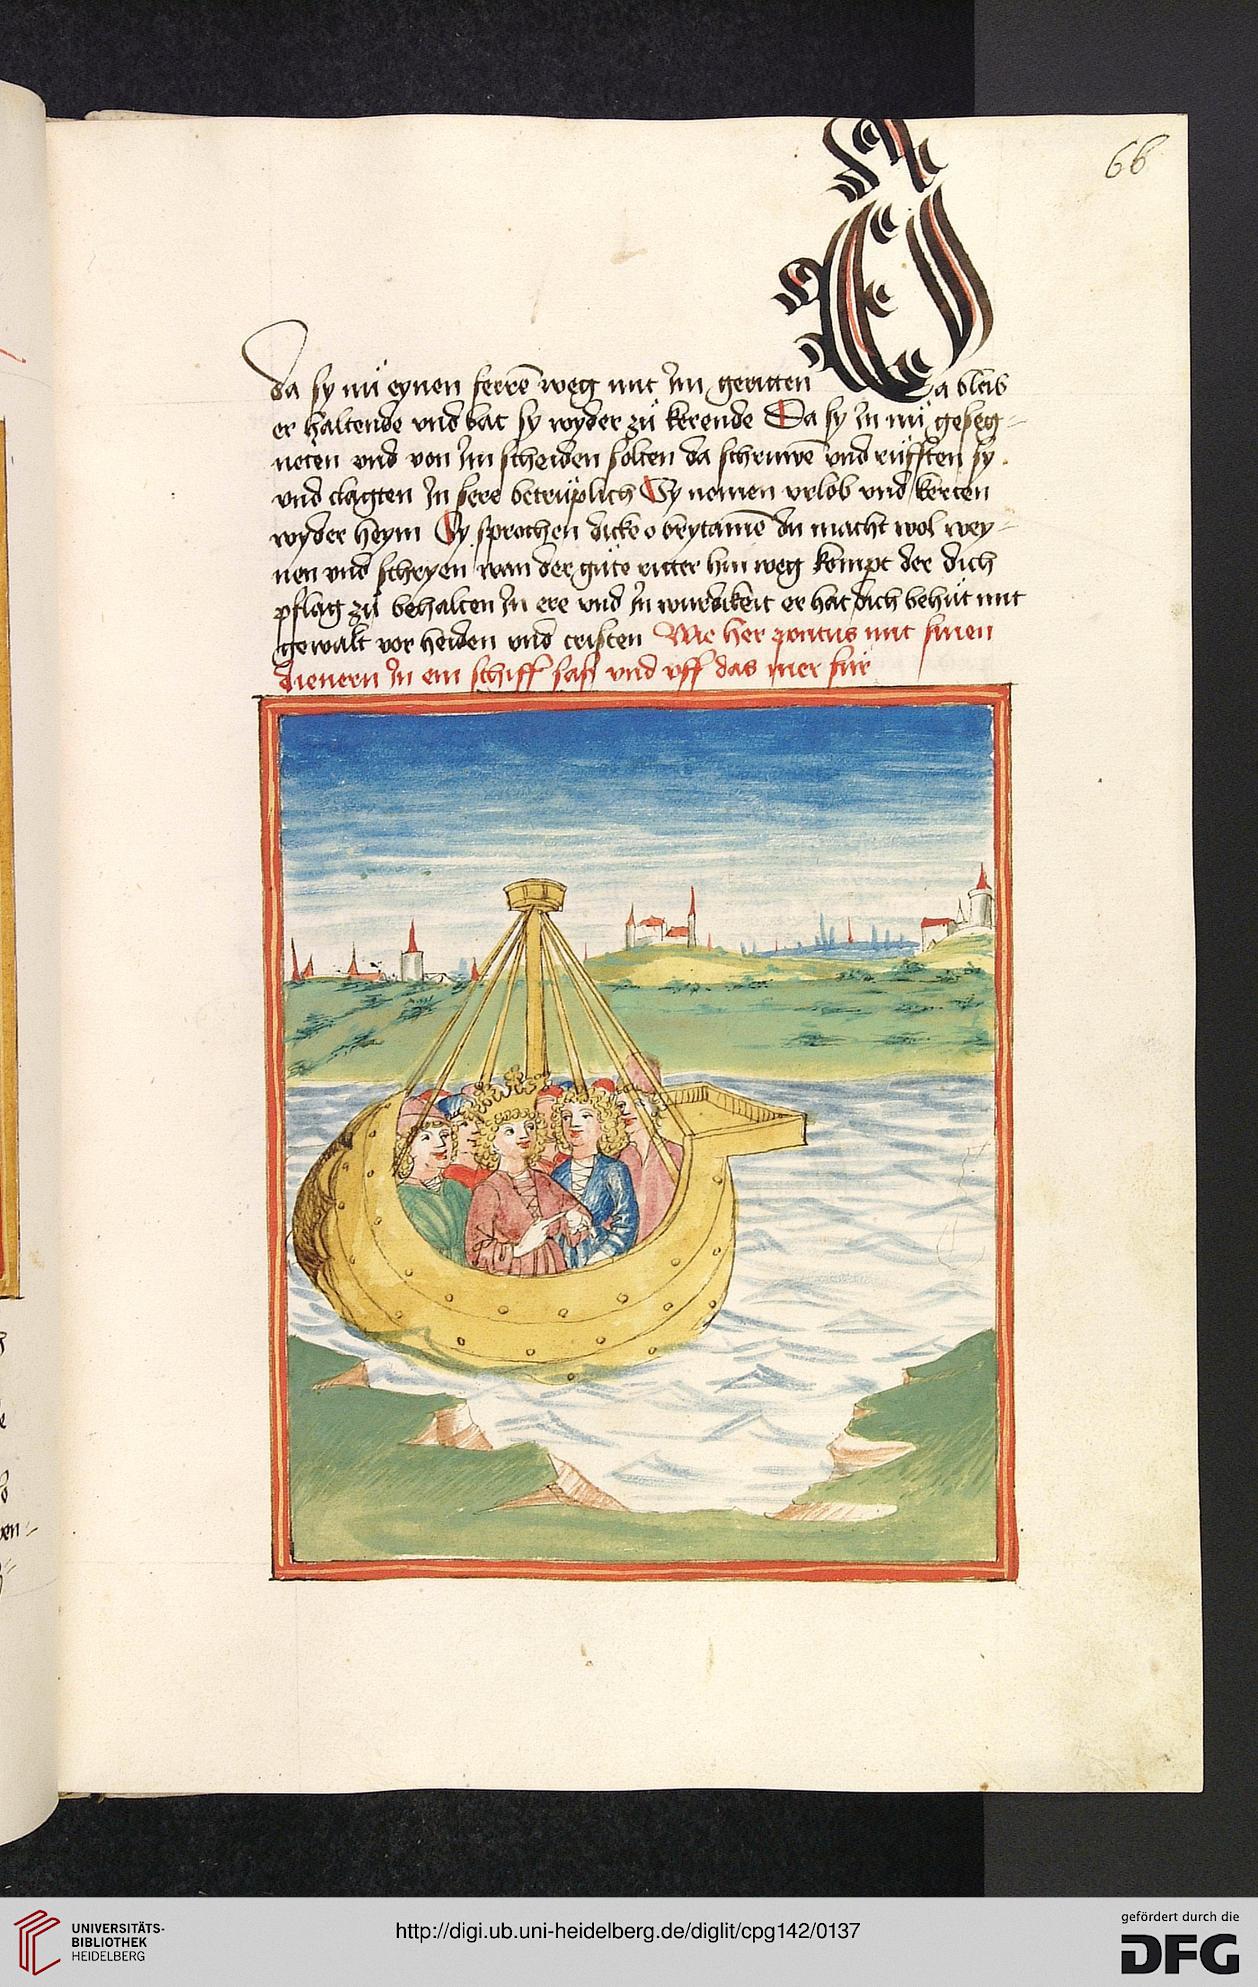 66
da sy nü eynen ferrē weg mit Im geritten Da bleib
er haltende vnd bat sy wyder zü kerende Da sy In nü geseg-
neten vnd von Im scheiden solten da schruwē vnd rüfften sy
vnd clagten In sere betrüplich Sy nomen vrlob vnd kerten
wyder heym Sy sprochen dicke o brytanie du macht wol wey-
nen vnd schryen wan der güte ritter hin weg kompt der dich
pflag zü behalten In ere vnd In wurdikeit er hat dich behüt mit
gewalt vor heiden vnd cristen Wie her pontus mit sinen
dienern In ein schiff saß vnd vff das mer für
UNIVERSITÄTS-
BIBLIOTHEK
HEIDELBERG
http://digi.ub.uni-heidelberg.de/diglit/cpg142/0137
gefördert durch die
DFG